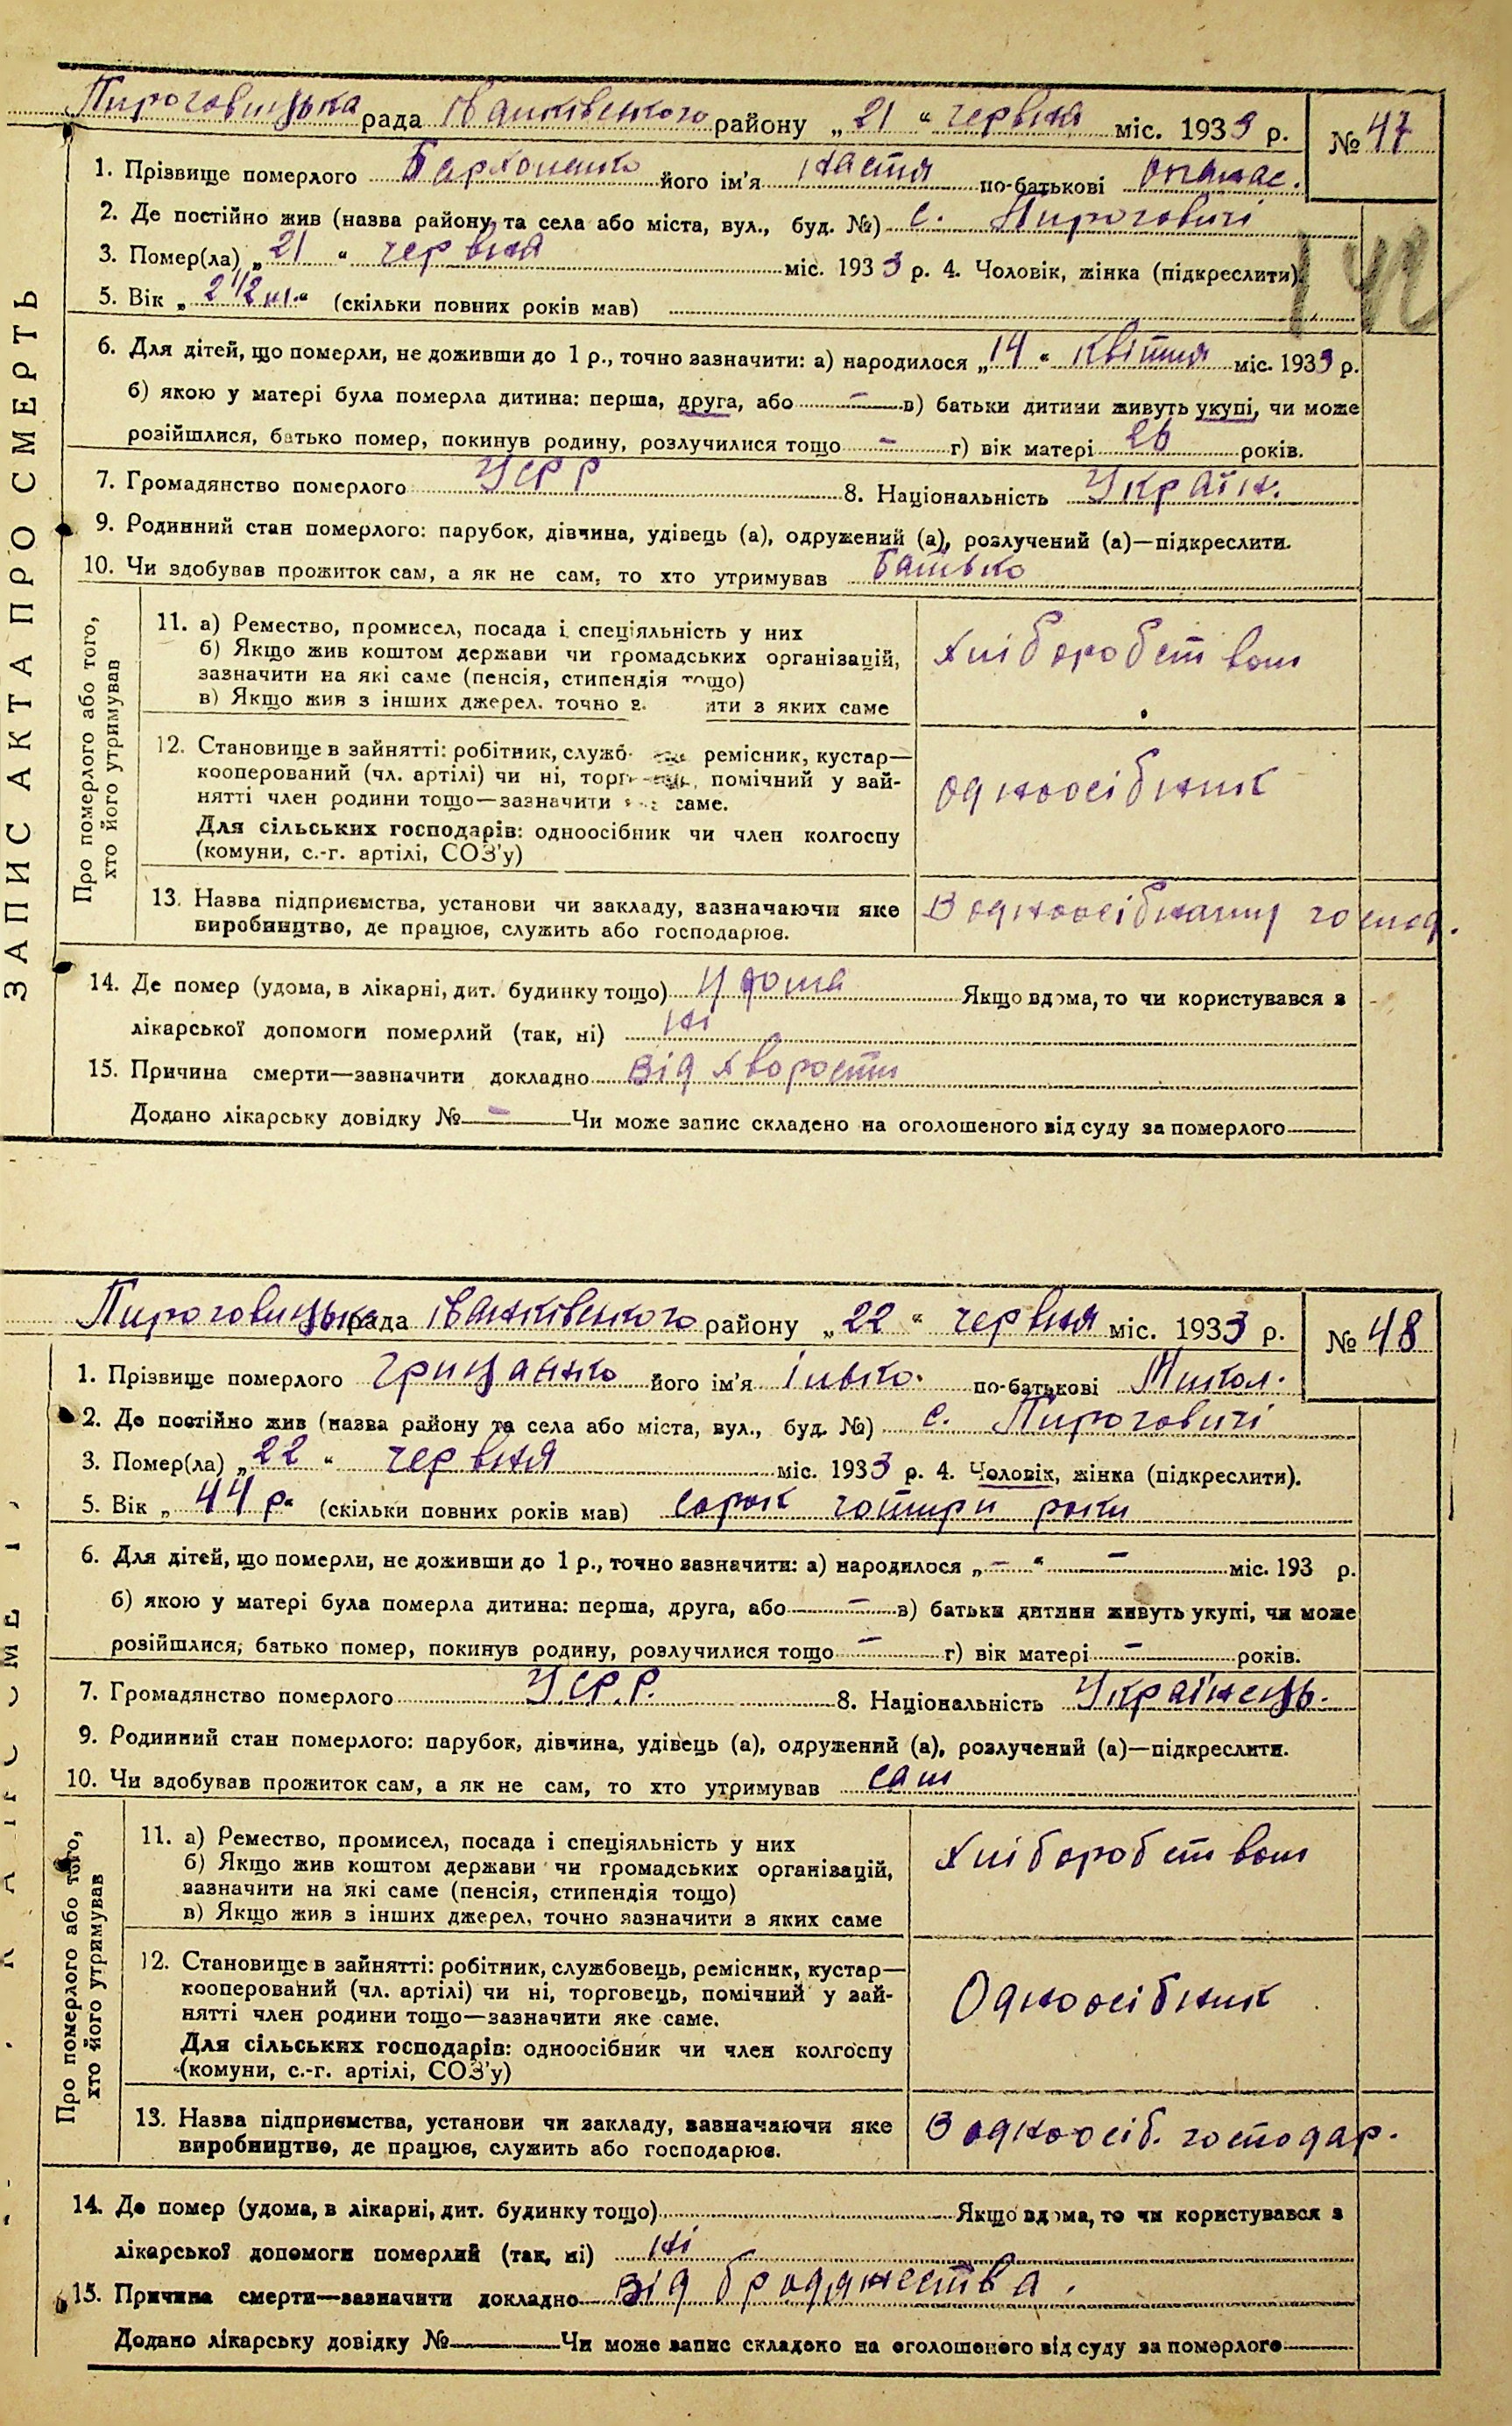 Пироговицька рада Іванківського району „21“ червня міс. 1933 р. № 47
1. Прізвище померлого Пархоменко його ім'я Настя по-батькові Опанас.
2. Де постійно жив (назва району та села або міста, вул., буд. №) с. Пироговичі
3. Помер(ла) „21“ червня міс. 1933 р. 4. Чоловік, жінка (підкреслити).
142
5. Вік „2 1/2 м.“ (скільки повних років мав)
6. Для дітей, що померли, не доживши до 1 р., точно зазначити: а) народилося „14“ квітня міс. 1933 р.
б) якою у матері була померла дитина: перша, друга, або — в) батьки дитини живуть укупі, чи може
розійшлися, батько помер, покинув родину, розлучилися тощо — г) вік матері 26 років.
7. Громадянство померлого УСРР 8. Національність Україн.
9. Родинний стан померлого: парубок, дівчина, удівець (а), одружений (а), розлучений (а)—підкреслити.
10. Чи здобував прожиток сам, а як не сам, то хто утримував Батько
ЗАПИС АКТА ПРО СМЕРТЬ
Про померлого або того,
хто його утримував
11. а) Ремество, промисел, посада і спеціяльність у них
б) Якщо жив коштом держави чи громадських організацій,
зазначити на які саме (пенсія, стипендія тощо)
в) Якщо жив з інших джерел, точно з ити з яких саме
Хліборобством
12. Становище в зайнятті: робітник, служб ремісник, кустар—
кооперований (чл. артілі) чи ні, торг помічний у зай-
нятті член родини тощо—зазначити яке саме.
Для сільських господарів: одноосібник чи член колгоспу
(комуни, с.-г. артілі, СОЗ'у)
Одноосібник
13. Назва підприємства, установи чи закладу, зазначаючи яке
виробництво, де працює, служить або господарює.
В одноосібному господ.
14. Де помер (удома, в лікарні, дит. будинку тощо) У дома Якщо вдома, то чи користувався з
лікарської допомоги померлий (так, ні) ні
15. Причина смерти—зазначити докладно від хворости
Додано лікарську довідку № — Чи може запис складено на оголошеного від суду за померлого
Пироговицька рада Іванківського району „22“ червня міс. 1933 р. № 48
1. Прізвище померлого Грищенко його ім'я Ілько. по-батькові Микол.
2. Де постійно жив (назва району та села або міста, вул., буд. №) с. Пироговичі
3. Помер(ла) „22“ червня міс. 1933 р. 4. Чоловік, жінка (підкреслити).
5. Вік „44 р.“ (скільки повних років мав) сорок чотири роки
6. Для дітей, що померли, не доживши до 1 р., точно зазначити: а) народилося „—“ — міс. 193 р.
б) якою у матері була померла дитина: перша, друга, або — в) батьки дитини живуть укупі, чи може
розійшлися, батько помер, покинув родину, розлучилися тощо — г) вік матері — років.
7. Громадянство померлого У.СР.Р. 8. Національність Українець.
9. Родинний стан померлого: парубок, дівчина, удівець (а), одружений (а), розлучений (а)—підкреслити.
10. Чи здобував прожиток сам, а як не сам, то хто утримував сам
Про померлого або того,
хто його утримував
11. а) Ремество, промисел, посада і спеціяльність у них
б) Якщо жив коштом держави чи громадських організацій,
зазначити на які саме (пенсія, стипендія тощо)
в) Якщо жив з інших джерел, точно зазначити з яких саме
Хліборобством
12. Становище в зайнятті: робітник, службовець, ремісник, кустар—
кооперований (чл. артілі) чи ні, торговець, помічний у зай-
нятті член родини тощо—зазначити яке саме.
Для сільських господарів: одноосібник чи член колгоспу
(комуни, с.-г. артілі, СОЗ'у)
Одноосібник
13. Назва підприємства, установи чи закладу, зазначаючи яке
виробництво, де працює, служить або господарює.
В одноосіб. господар.
14. Де помер (удома, в лікарні, дит. будинку тощо) Якщо вдома, то чи користувався з
лікарської допомоги померлий (так, ні) ні
15. Причина смерти—зазначити докладно від бродяжества.
Додано лікарську довідку № Чи може запис складено на оголошеного від суду за померлого